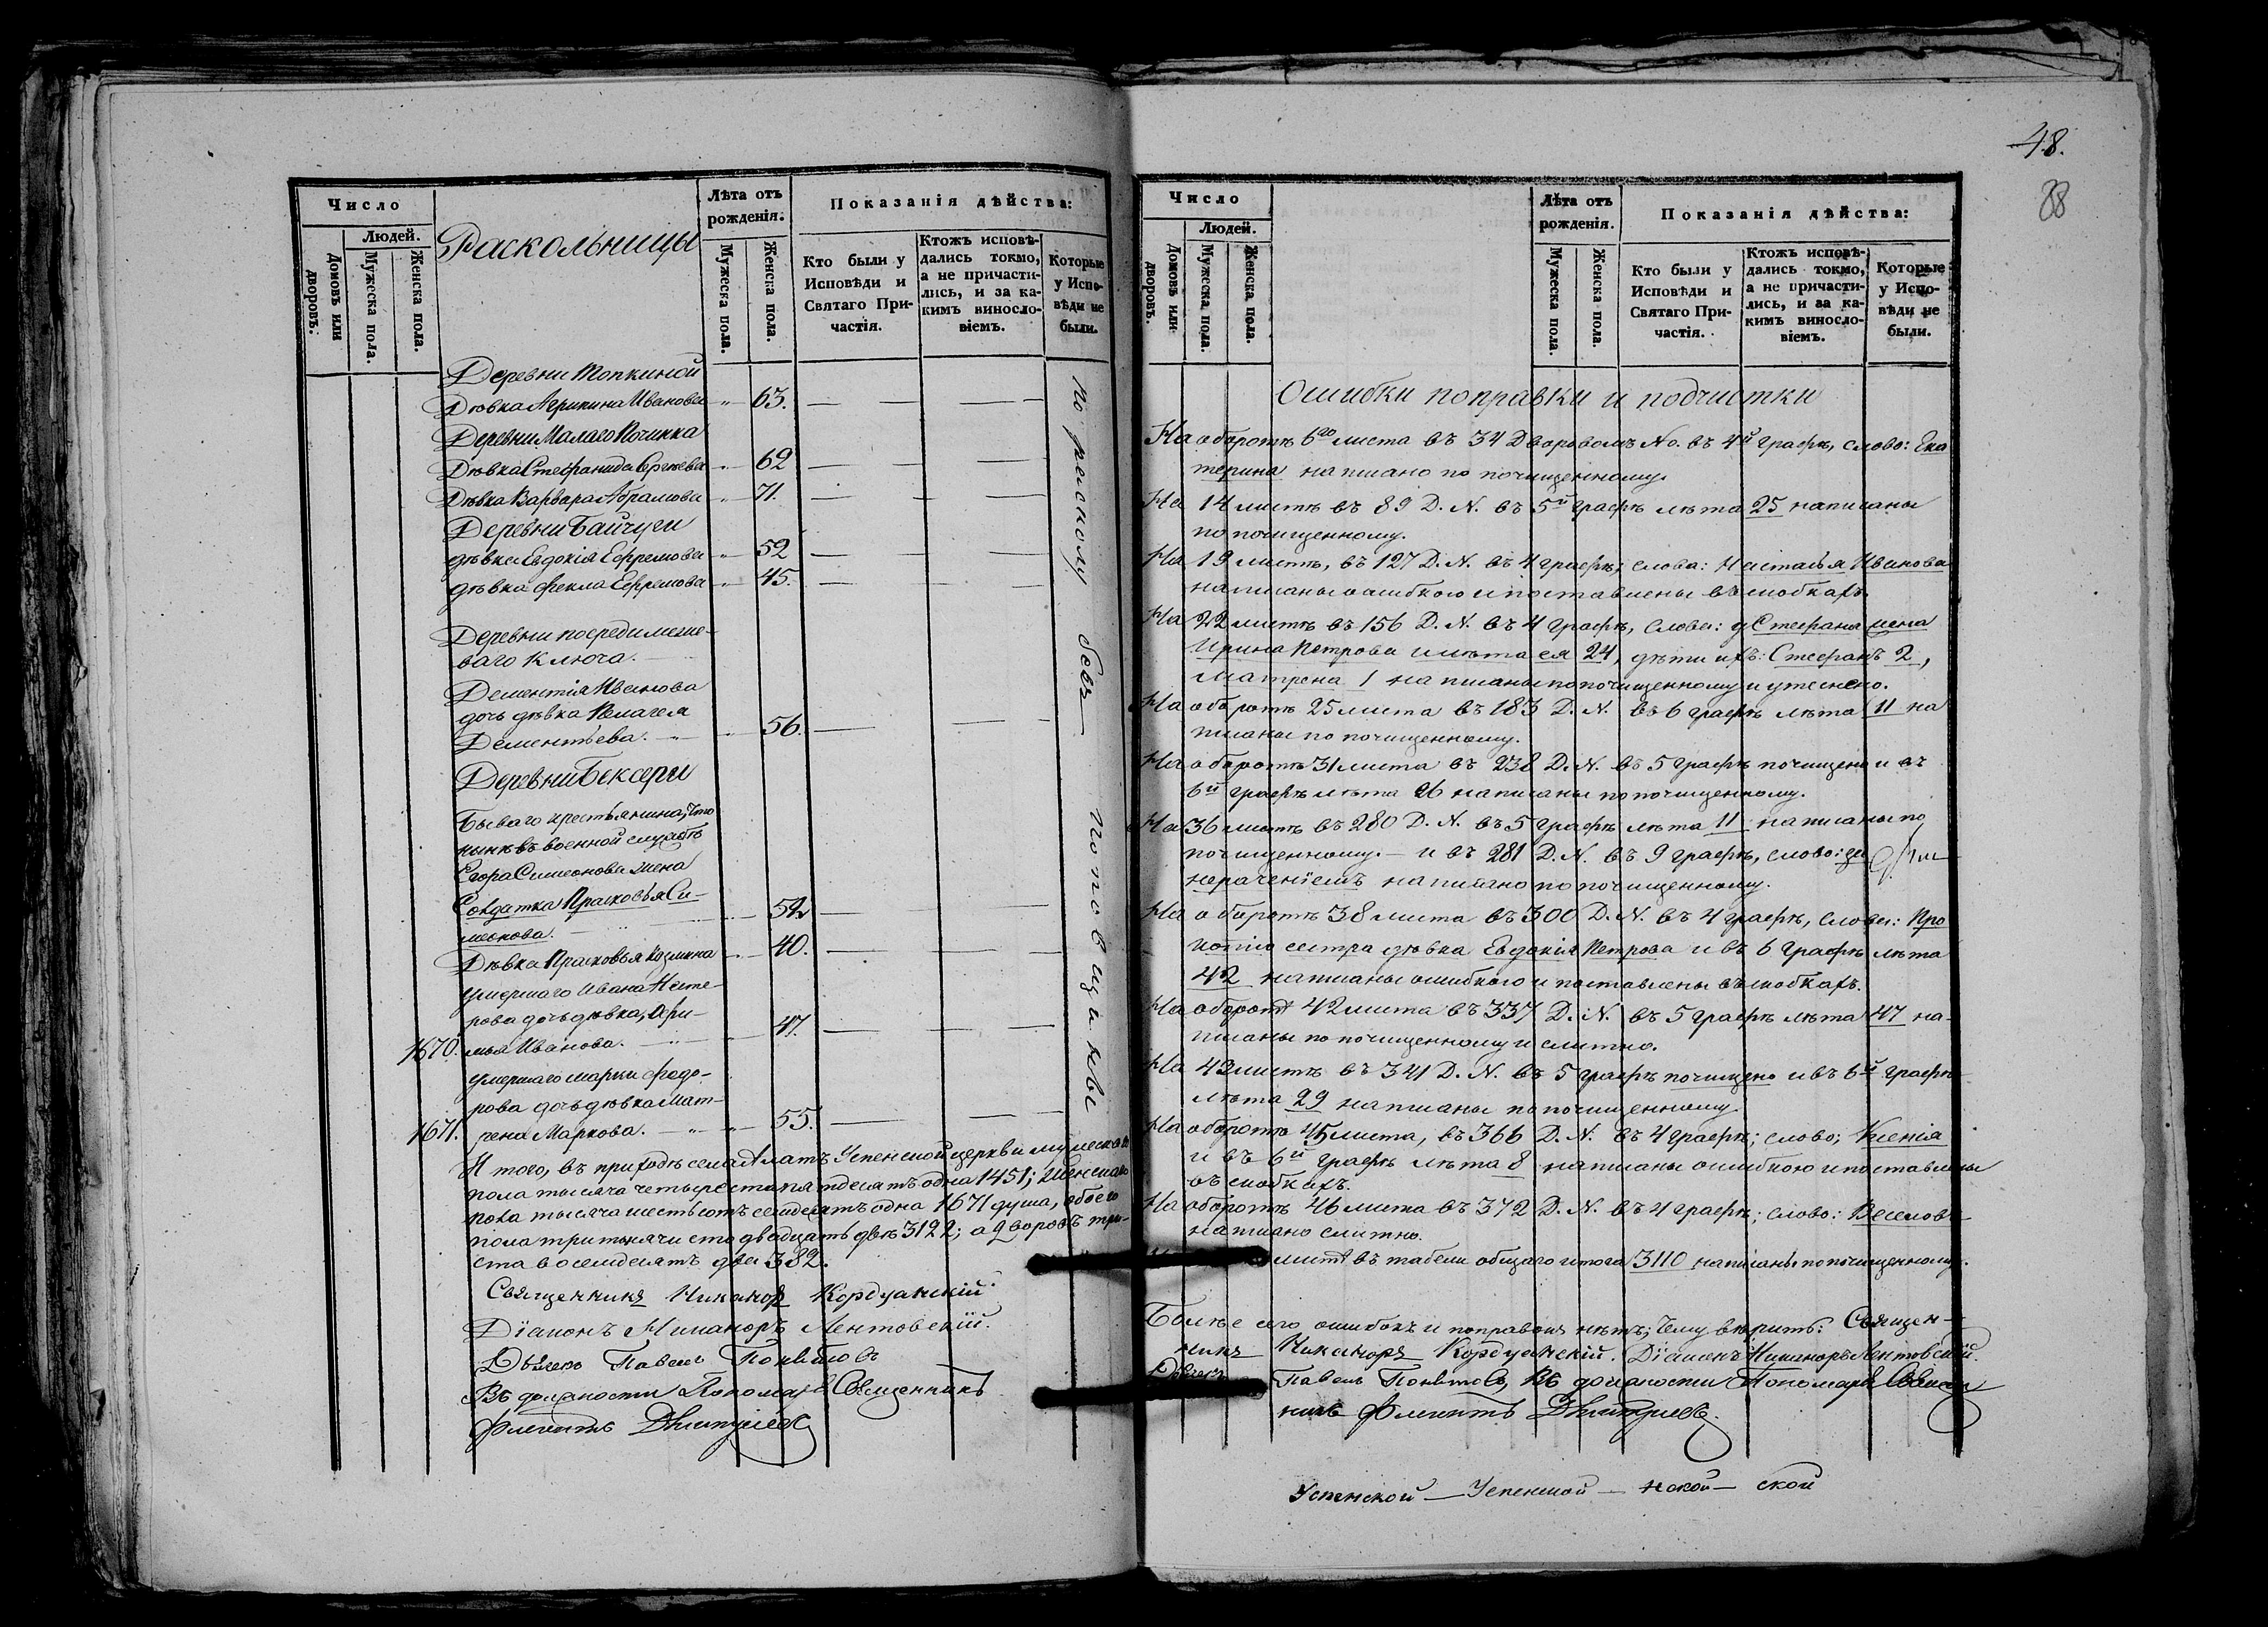 Число
Людей.
Домовъ или дворовъ.
Мужеска пола.
Женска пола.
Раскольницы
Лѣта отъ рожденія.
Мужеска пола.
Женска пола.
Показанія дѣйства:
Кто были у Исповѣди и Святаго Причастія.
Ктожъ исповѣдались токмо, а не причастились, и за какимъ винословіемъ.
Которые у Исповѣди не были.
Деревни Топкиной
Дѣвка Агрипина Иванова „ 63.
Деревни Малаго Починка
Дѣвка Стефанида Сергѣева „ 62
Дѣвка Варвара Абрамова „ 71.
Деревни Байчуги
дѣвка Евдокія Ефремова „ 52
дѣвка Фекла Ефремова „ 45.
Деревни посреди
ваго Ключа.
Дементія Иванова
дочь дѣвка Пелагея
Дементьева. „ 56.
Деревни Бексери
Бываго крестьянина, что
нынѣ въ военной службѣ
Егора Симеонова жена
Солдатка Прасковья Си-
меонова. 52
Дѣвка Прасковья Козмина 40.
умершаго Ивана Несте-
рова дочь дѣвка,
1670. Иванова. „ 47.
умершаго Марки Федо-
рова дочь дѣвка Мат-
1671. рена Маркова. „ 55.
по расколу безъ поповщины
И того, въ приходѣ села Успенской церкви мужеска
пола тысяча четыреста пятдесятъ одна 1451; Женскаго
пола тысяча шестьсотъ семдесятъ одна 1671 душа, обоего
пола три тысячи сто двадцать двѣ 3122; а дворовъ три-
ста восемдесятъ два 382.
Священникъ Никаноръ Кордуанскій.
Діаконъ Никаноръ Лентовскій.
Дьячекъ Павелъ
Въ должности Пономаря Священникъ
Дмитріевъ
48.
88
Число
Людей.
Домовъ или дворовъ.
Мужеска пола.
Женска пола.
Лѣта отъ рожденія.
Мужеска пола.
Женска пола.
Показанія дѣйства:
Кто были у Исповѣди и Святаго Причастія.
Ктожъ исповѣдались токмо, а не причастились, и за какимъ винословіемъ.
Которые у Исповѣди не были.
Ошибки поправки и подчистки
На оборотѣ 6го листа въ 34 Дворовомъ No. въ 4й графѣ, слово: Ека
терина написано по почищенному.
На 14 листѣ въ 89 Д. N. въ 5й графѣ лѣта 25 написаны
по почищенному.
На 19 листѣ, въ 127 Д. N. въ 4 графѣ; слова: Настасья Иванова
написаны ошибкою и поставлены въ скобкахъ.
На 22 листѣ въ 156 Д. N. въ 4 графѣ, слова: у Стефана жена
Ирина Петрова и лѣта ея 24, дѣти ихъ: Стефанъ 2,
Матрена 1 написаны по почищенному и утеснено.
На оборотѣ 25 листа въ 183 Д. N. въ 6 графѣ лѣта 11 на
писаны по почищенному.
На оборотѣ 31 листа въ 238 Д. N. въ 5 графѣ почищено и въ
6й графѣ лѣта 26 написаны по почищенному.
На 36 листѣ въ 280 Д. N. въ 5 графѣ лѣта 11 написаны по
почищенному. — и въ 281 Д. N. въ 9 графѣ, слово: за
нераченіемъ написано по почищенному.
На оборотѣ 38 листа въ 300 Д. N. въ 4 графѣ, слова: Про
копія сестра дѣвка Евдокія Петрова и въ 6 графѣ лѣта
42 написаны ошибкою и поставлены въ скобкахъ.
На оборотѣ 42 листа въ 337 Д. N. въ 5 графѣ лѣта 47 на-
писаны по почищенному и слитно.
На 43 листѣ въ 341 Д. N. въ 5 графѣ почищено и въ 6й графѣ
лѣта 29 написаны по почищенному.
На оборотѣ 45 листа, въ 366 Д. N. въ 4 графѣ; слово; Ксенія
и въ 6й графѣ лѣта 8 написаны ошибкою и поставлены
въ скобкахъ.
На оборотѣ 46 листа въ 372 Д. N. въ 4 графѣ; слово:
написано слитно.
листѣ въ табели общаго итога 3110 написаны по почищенному.
Болѣе сего ошибокъ и поправокъ нѣтъ; Чему вѣрить: Священ-
никъ Никаноръ Кордуанскій. Діаконъ Никаноръ Лентовскій.
Дьячекъ Павелъ Въ должности Пономаря Священ
никъ Дмитріевъ.
Успенской — Успенской — нской — ской